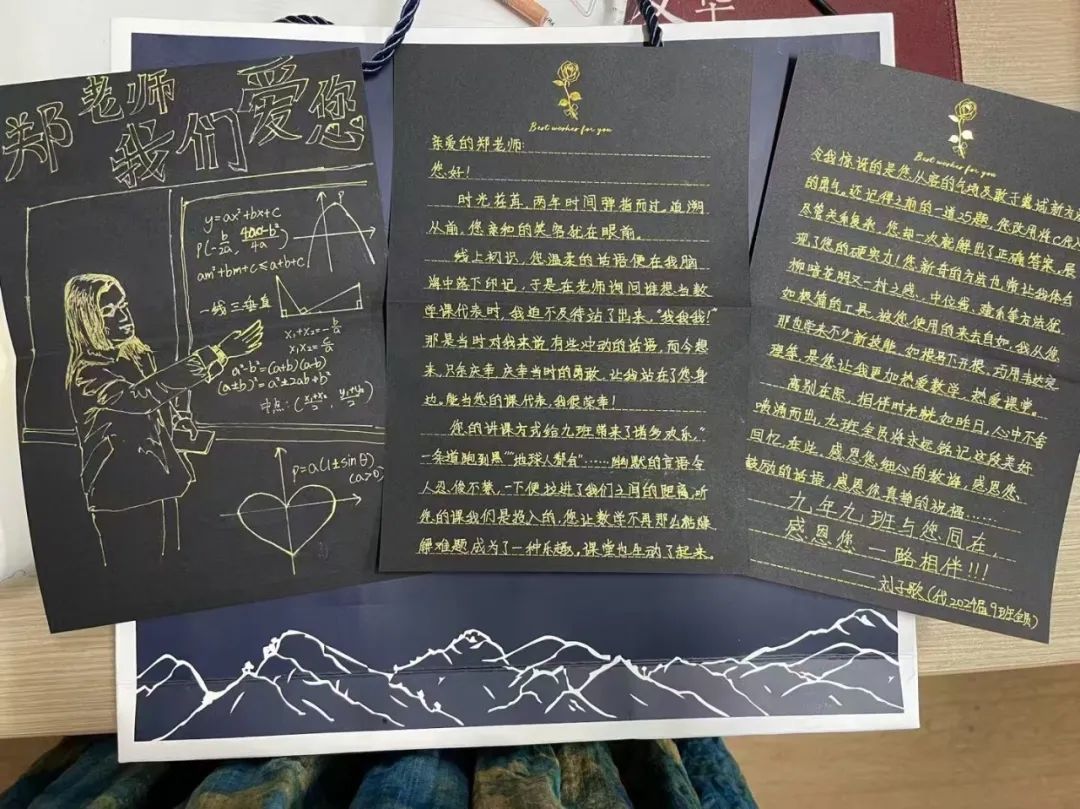 郑老师
我们爱您
y=ax²+bx+c
P(-b/2a, 4ac-b²/4a)
am²+bm+c≤a+b+c
P
一线三垂直
x₁+x₂=-b/a
x₁x₂=c/a
a²-b²=(a+b)(a-b)
(a±b)²=a²±2ab+b²
中点:(x₁+x₂/2, y₁+y₂/2)
ρ=a(1±sinθ)
(a>0)
Best wishes for you
亲爱的郑老师:
您好!
时光荏苒,两年时间弹指而过。追溯
从前,您亲和的笑容犹在眼前。
线上初识,您温柔的话语便在我脑
海中落下印记,于是在老师询问谁想当数
学课代表时,我迫不及待站了出来。“我我我!”
那是当时对我来说有些冲动的话语,而今想
来,只余庆幸,庆幸当时的勇敢,让我站在了您身
边。能当您的课代表,我很荣幸!
您的讲课方式给九班带来了诸多欢乐,“
一条道跑到黑”“地球人都会”……幽默的言语令
人忍俊不禁,一下便拉进了我们之间的距离,听
您的课我们是投入的,您让数学不再那么枯燥
解难题成为了一种乐趣,课堂也生动了起来。
Best wishes for you
令我惊讶的是您从容的气场及敢于尝试新方法
的勇气。还记得之前的一道25题,您改用将C代入
尽管关系复杂,您却一次就解出了正确答案,展
现了您的硬实力!您新奇的方法也常让我体会
柳暗花明又一村之感。中位差、建系等方法犹
如极简的工具,被您使用的来去自如。我从您
那也学来不少新技能,如根号下开根,巧用韦达定
理等,是您让我更加热爱数学,热爱课堂。
离别在际,相伴时光就如昨日,心中不舍
喷涌而出,九班全员将永远铭记这段美好
回忆。在此,感恩您细心的教诲,感恩您
鼓励的话语,感恩你真挚的祝福……
九年九班与您同在,
感恩您一路相伴!!!
——刘子歌(代2024届9班全员)